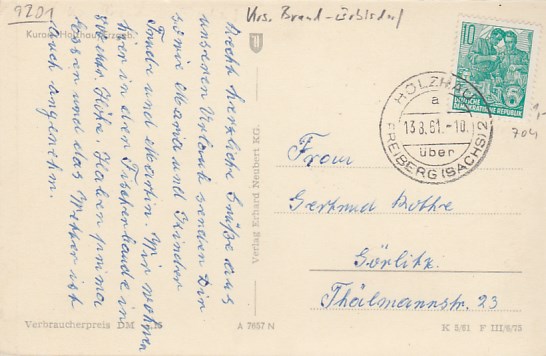 9201
Krs. Brand-Erbisdorf
Kurort Holzhau/Erzgeb.
Recht herzliche Grüße aus
unserem Urlaub senden Dir
sowie Maria und Kinder
Trude und Martin. Wir wohnen
hier in der Fischerbaude in
Höhe. Haben prima
Essen und das Wetter ist
auch angenehm.
Verlag Erhard Neubert KG.
10
DEUTSCHE
DEMOKRATISCHE REPUBLIK
HOLZHAU
a
13.8.61.-10
über
FREIBERG (SACHS) 2
1,-
704
Frau
Gertrud Bothe
Görlitz
Thälmannstr. 23
Verbraucherpreis DM
A 7657 N
K 5/61 F III/6/75